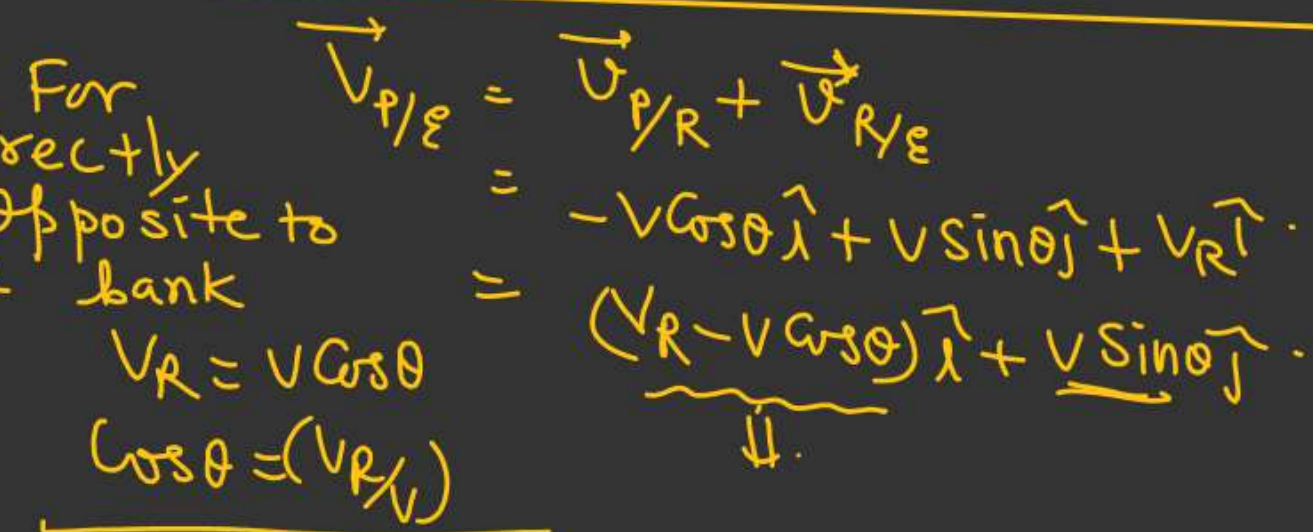 For
rectly
Opposite to
bank
V_R = V Cosθ
Cosθ = (V_R/V)
V⃗_{P/E} = v⃗_{P/R} + v⃗_{R/E}
= -V Cosθ î + V Sinθ ĵ + V_R î .
= (V_R - V Cosθ) î + V Sinθ ĵ .
⇓.